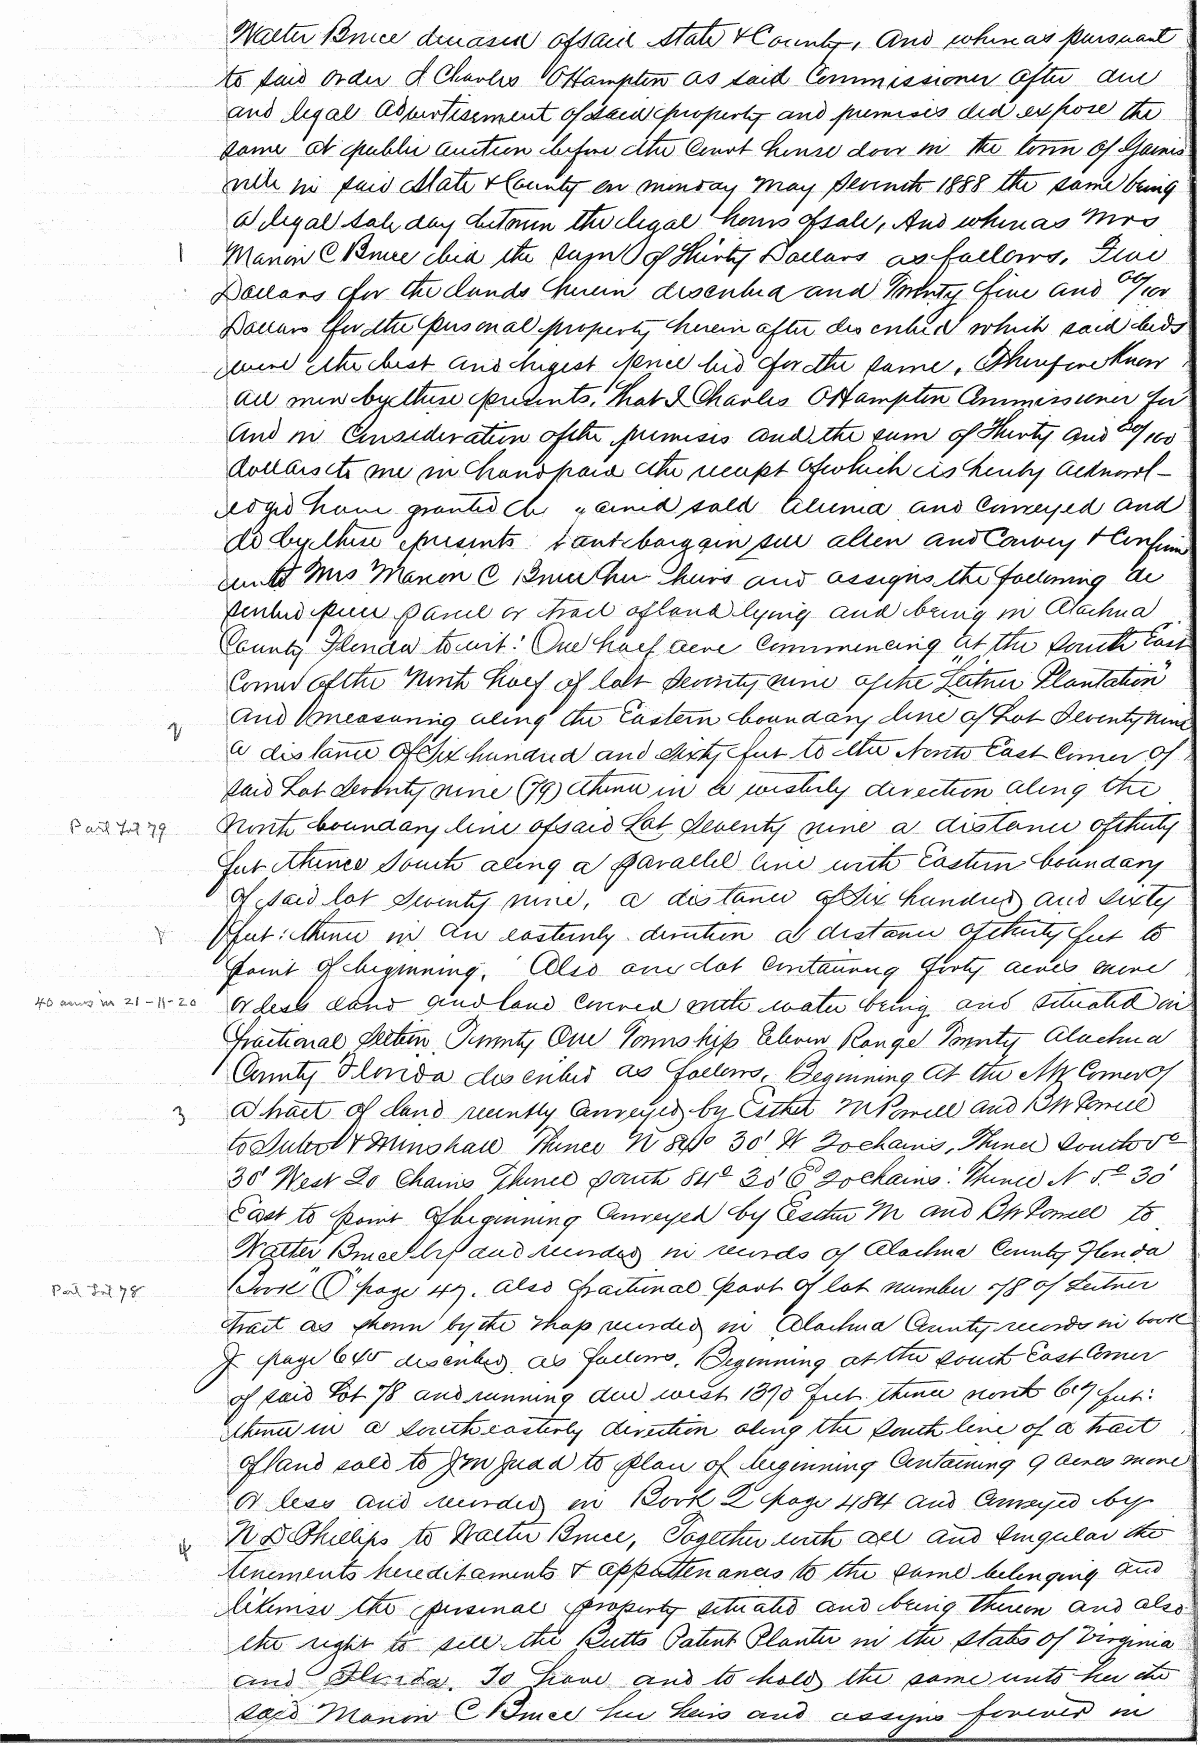 Walter Bruce deceased of said State & County, And whereas pursuant
to said order I Charles O Hampton as said Commissioner after due
and legal advertisement of said property and premises did expose the
same at public auction before the Court house door in the town of Gaines
ville in said State & County on monday May Seventh 1888 the same being
a legal sale day between the legal hours of sale, And whereas Mrs
1 Marion C Bruce bid the sum of Thirty Dollars as follows, Five
Dollars for the lands herein described and Twenty five and 00/100
Dollars for the personal property herein after described which said bids
were the best and highest price bid for the same, Therefore Know
all men by these presents, that I Charles O Hampton Commissioner for
and in Consideration of the premises and the sum of Thirty and 00/100
dollars to me in hand paid the receipt of which is hereby acknowl-
edged have granted sold aliened and Conveyed and
do by these presents bargain sell alien and Convey & Confirm
unto Mrs Marion C Bruce her heirs and assigns the following de
scribed piece parcel or tract of land lying and being in Alachua
County Florida to wit: One half acre Commencing at the South East
Corner of the North half of lot Seventy nine of the "Leitner Plantation"
and measuring along the Eastern boundary line of Lot Seventy nine
2 a distance of Six hundred and sixty feet to the North East Corner of
said Lot Seventy nine (79) thence in a westerly direction along the
Part Lot 79 North boundary line of said Lot Seventy nine a distance of thirty
feet thence South along a parallel line with Eastern boundary
of said lot Seventy nine, a distance of Six hundred and sixty
feet: thence in an easterly direction a distance of thirty feet to
point of beginning. Also one lot Containing forty acres more
40 acres in 21-11-20 or less land and land Covered with water being and situated in
fractional Section Twenty One Township Eleven Range Twenty Alachua
County Florida described as follows, Beginning at the NW Corner of
3 a tract of land recently Conveyed by Esther M Powell and B W Powell
to & Minshall Thence N 84° 30' W 20 chains, Thence South 5°
30' West 20 Chains Thence South 84° 30' E 20 chains: Thence N 5° 30'
East to point of beginning Conveyed by Esther M and B W Powell to
Walter Bruce by and recorded in records of Alachua County Florida
Part Lot 78 Book "O" page 47. also fractional part of lot number 78 of Leitner
tract as shown by the map recorded in Alachua County records in book
J page 645 described as follows. Beginning at the South East Corner
of said Lot 78 and running due west 1370 feet thence north 617 feet:
thence in a southeasterly direction along the South line of a tract
of land sold to J M Judd to place of beginning Containing 9 acres more
or less and recorded in Book Q page 484 and Conveyed by
4 N D Phillips to Walter Bruce, Together with all and singular the
tenements hereditaments & appurtenances to the same belonging and
likewise the personal property situated and being thereon and also
the right to sell the Butts Patent Planter in the states of Virginia
and Florida. To have and to hold the same unto her the
said Marion C Bruce her heirs and assigns forever in